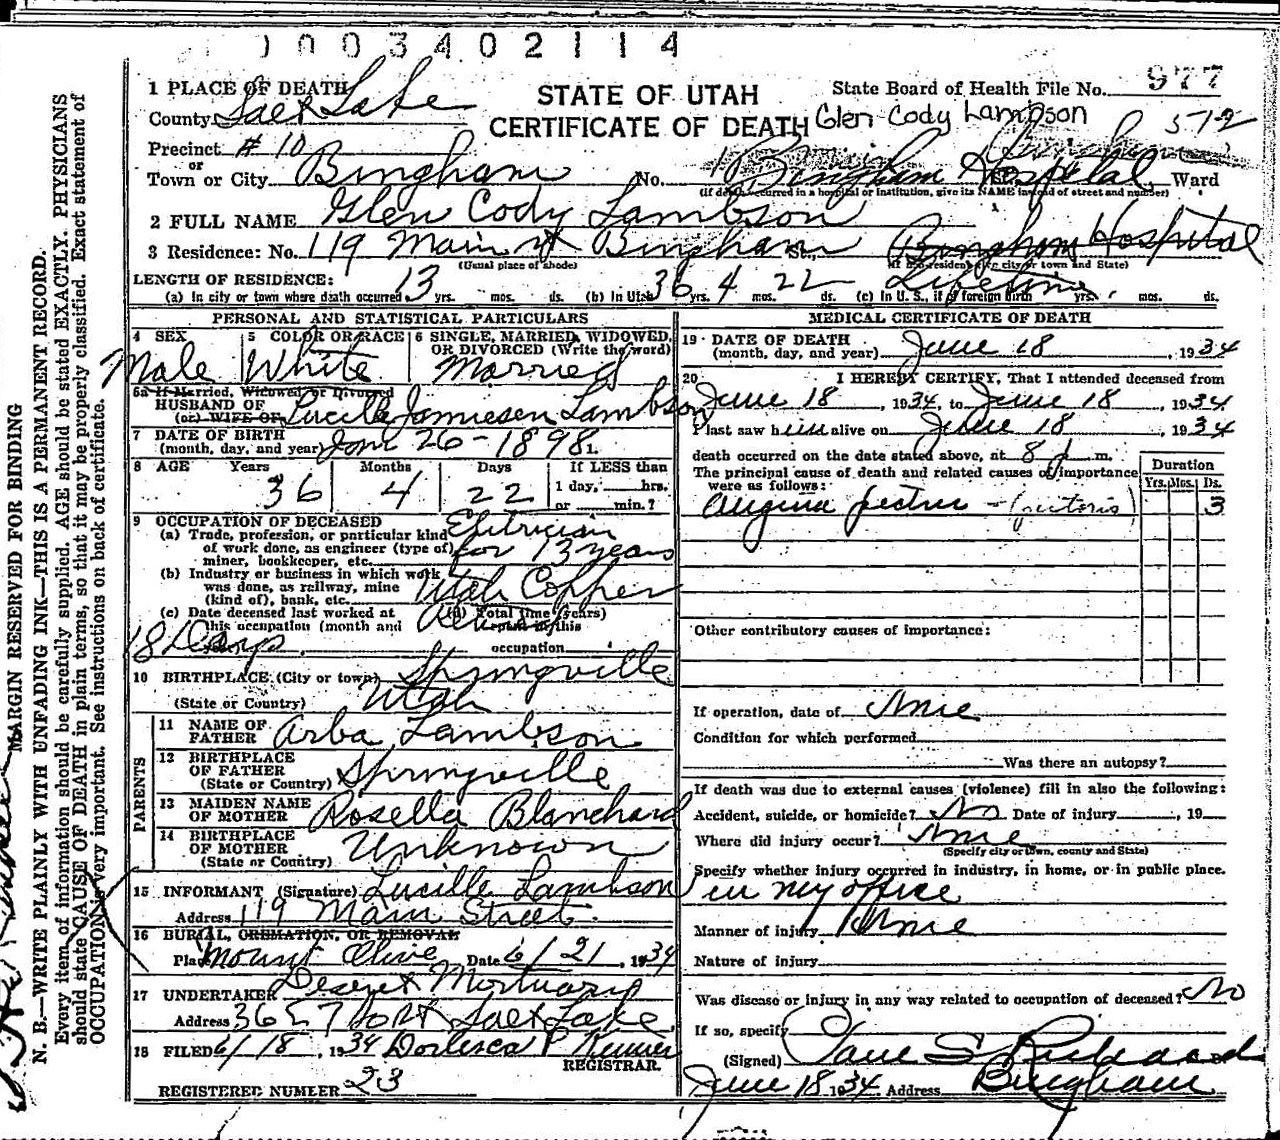 1003402114
1 PLACE OF DEATH
STATE OF UTAH
CERTIFICATE OF DEATH
State Board of Health File No. 977
Glen Cody Lambson 572
County Salt Lake
Precinct # 10
or
Town or City Bingham No. Bingham Hospital St., Ward
(If death occurred in a hospital or institution, give its NAME instead of street and number)
2 FULL NAME Glen Cody Lambson
3 Residence: No. 119 Main st Bingham St., Bingham Hospital
(Usual place of abode) (If non-resident give city or town and State)
LENGTH OF RESIDENCE:
(a) In city or town where death occurred 13 yrs. mos. ds. (b) In Utah 36 yrs. 4 mos. 22 ds. (c) In U. S., if of foreign birth Lifetime yrs. mos. ds.
PERSONAL AND STATISTICAL PARTICULARS
4 SEX
Male
5 COLOR OR RACE
White
6 SINGLE, MARRIED, WIDOWED,
OR DIVORCED (Write the word)
Married
6a If Married, Widowed or Divorced
HUSBAND OF
(or) WIFE OF Lucille Jamiesen Lambson
7 DATE OF BIRTH
(month, day, and year) Jan 26 - 1898
8 AGE Years Months Days If LESS than
1 day, hrs.
or min.?
36 4 22
9 OCCUPATION OF DECEASED
(a) Trade, profession, or particular kind
of work done, as engineer (type of)
miner, bookkeeper, etc.
Eletrician
for 13 years
(b) Industry or business in which work
was done, as railway, mine
(kind of), bank, etc.
Utah Copper
(c) Date deceased last worked at
this occupation (month and
18 Days
(d) Total time (years)
spent in this
occupation
10 BIRTHPLACE (City or town) Springville
(State or Country) Utah
PARENTS
11 NAME OF
FATHER Arba Lambson
12 BIRTHPLACE
OF FATHER
(State or Country) Springville
13 MAIDEN NAME
OF MOTHER Rosella Blanchard
14 BIRTHPLACE
OF MOTHER
(State or Country) Unknown
15 INFORMANT (Signature) Lucille Lambson
Address 119 Main Street.
16 BURIAL, CREMATION, OR REMOVAL
Place Mount Olive Date 6/21, 1934
17 UNDERTAKER Deseret Mortuary
Address 36 E 7 So St Salt Lake
18 FILED 6/18, 1934
REGISTRAR
REGISTERED NUMBER 23
MEDICAL CERTIFICATE OF DEATH
19 DATE OF DEATH
(month, day, and year) June 18, 1934
20 I HEREBY CERTIFY, That I attended deceased from
June 18, 1934, to June 18, 1934
I last saw him alive on June 18, 1934
death occurred on the date stated above, at 8 p m.
The principal cause of death and related causes of importance
were as follows:
Duration
Yrs. Mos. Ds.
Angina pectus - (pectoris) 3
Other contributory causes of importance:
If operation, date of None
Condition for which performed
Was there an autopsy?
If death was due to external causes (violence) fill in also the following:
Accident, suicide, or homicide? No Date of injury , 19
Where did injury occur? None
(Specify city or town, county and State)
Specify whether injury occurred in industry, in home, or in public place.
in my office
Manner of injury None
Nature of injury
Was disease or injury in any way related to occupation of deceased? No
If so, specify
(Signed) Paul S Richards
June 18 1934 Address Bingham
MARGIN RESERVED FOR BINDING
N. B.—WRITE PLAINLY WITH UNFADING INK—THIS IS A PERMANENT RECORD.
Every item of information should be carefully supplied. AGE should be stated EXACTLY. PHYSICIANS
should state CAUSE OF DEATH in plain terms, so that it may be properly classified. Exact statement of
OCCUPATION is very important. See instructions on back of certificate.